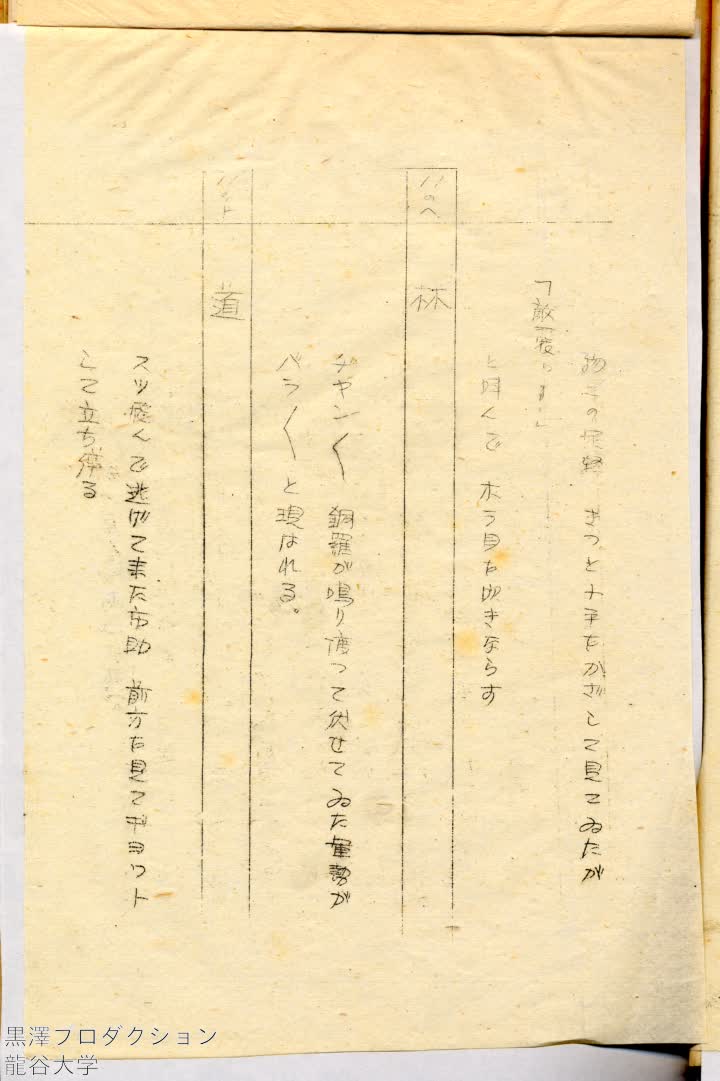 物見の足軽 ぢつと小手をかざして見てゐたが
「敵襲ッ！」
と叫んで ホラ貝を吹きならす
林
チヤン〱 銅羅が鳴り渡つて伏せてゐた軍勢が
バラ〱と現はれる。
道
スツ飛んで逃げて来た市助 前方を見てギヨツト
して立ち停る
黒澤プロダクション
龍谷大学